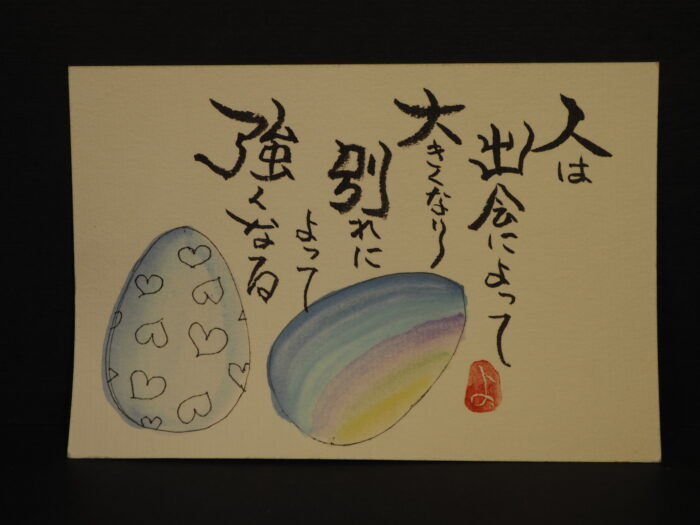 人は
出会によって
大きくなり
別れに
よって
強くなる